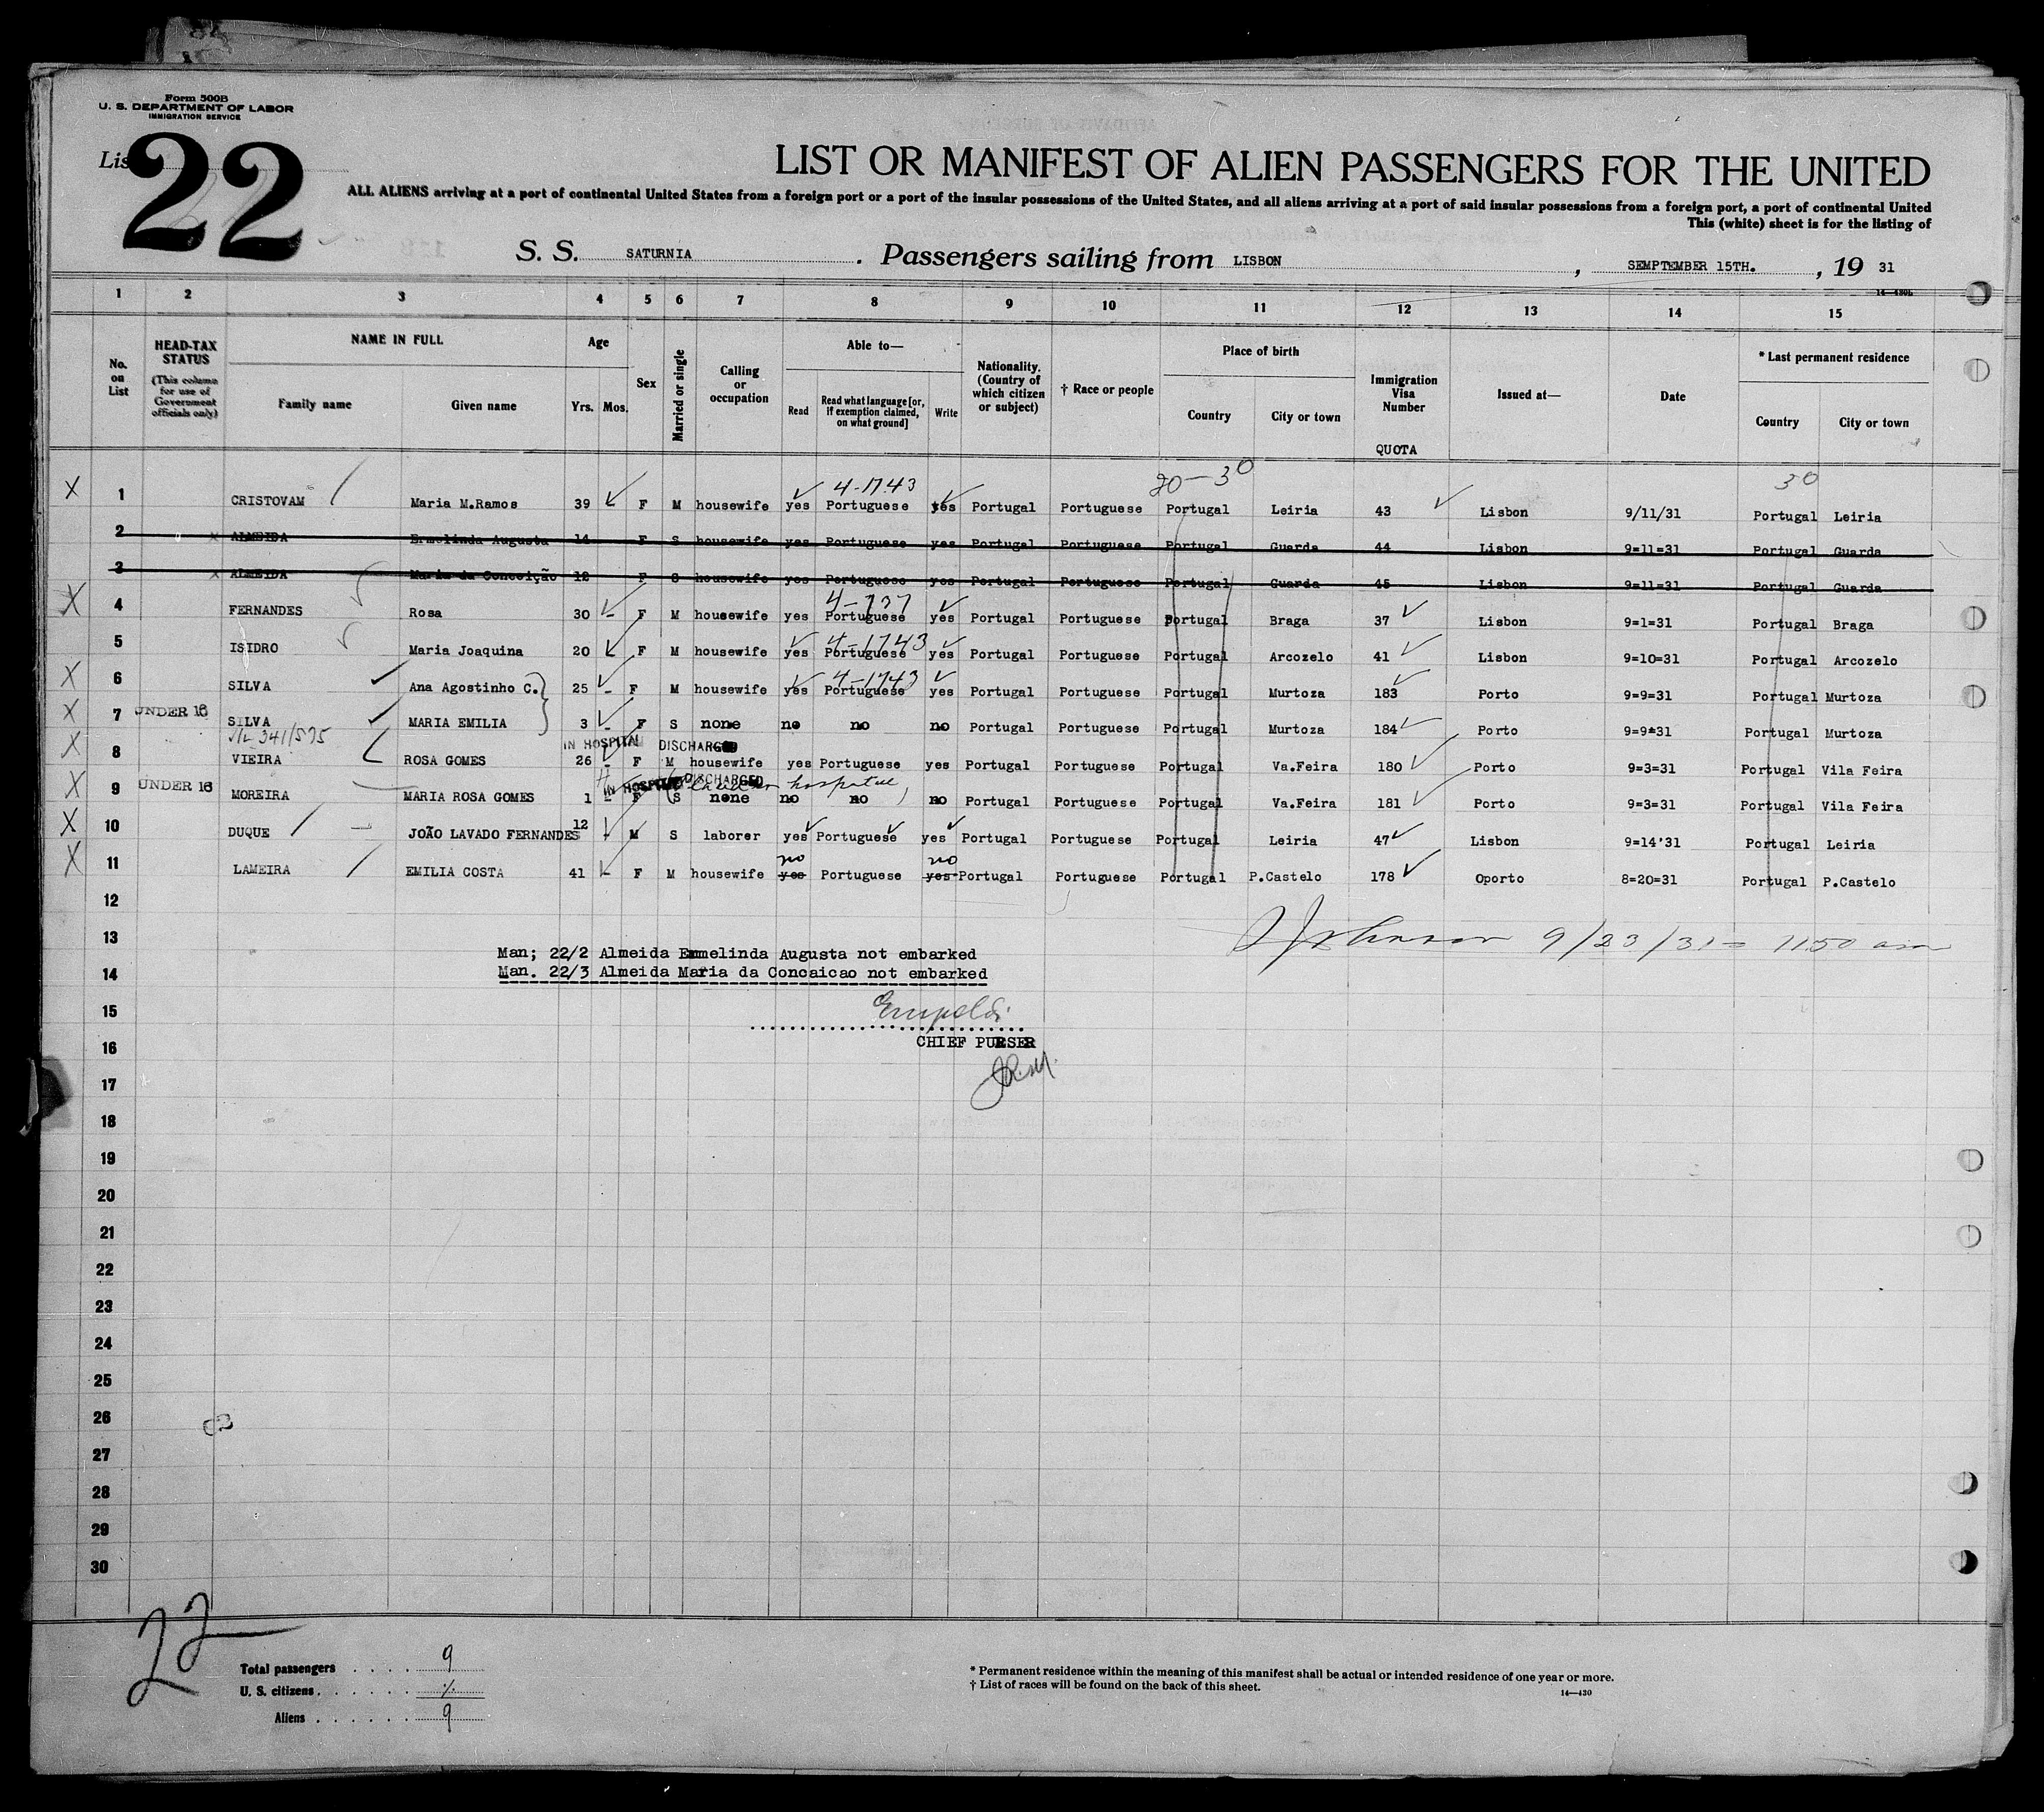 Form 500B
U. S. DEPARTMENT OF LABOR
IMMIGRATION SERVICE
22
LIST OR MANIFEST OF ALIEN PASSENGERS FOR THE UNITED
ALL ALIENS arriving at a port of continental United States from a foreign port or a port of the insular possessions of the United States, and all aliens arriving at a port of said insular possessions from a foreign port, a port of continental United
This (white) sheet is for the listing of
S. S. SATURNIA . Passengers sailing from LISBON , SEMPTEMBER 15TH. , 19 31
14—430b
1 2 3 4 5 6 7 8 9 10 11 12 13 14 15
No. on List
HEAD-TAX STATUS
(This column for use of Government officials only)
NAME IN FULL
Family name Given name
Age
Yrs. Mos.
Sex
Married or single
Calling or occupation
Able to—
Read
Read what language [or, if exemption claimed, on what ground]
Write
Nationality. (Country of which citizen or subject)
† Race or people
Place of birth
Country City or town
Immigration Visa Number
QUOTA
Issued at—
Date
* Last permanent residence
Country City or town
4-1743 20-30 30
X 1 CRISTOVAM Maria M.Ramos 39 F M housewife yes Portuguese yes Portugal Portuguese Portugal Leiria 43 Lisbon 9/11/31 Portugal Leiria
2 x ALMEIDA Ermelinda Augusta 14 F S housewife yes Portuguese yes Portugal Portuguese Portugal Guarda 44 Lisbon 9=11=31 Portugal Guarda
3 x ALMEIDA Maria da Conceição 12 F S housewife yes Portuguese yes Portugal Portuguese Portugal Guarda 45 Lisbon 9=11=31 Portugal Guarda
4-737
X 4 FERNANDES Rosa 30 - F M housewife yes Portuguese yes Portugal Portuguese Portugal Braga 37 Lisbon 9=1=31 Portugal Braga
4-1743
5 ISIDRO Maria Joaquina 20 F M housewife yes Portuguese yes Portugal Portuguese Portugal Arcozelo 41 Lisbon 9=10=31 Portugal Arcozelo
4-1743
X 6 SILVA Ana Agostinho C. 25 - F M housewife yes Portuguese yes Portugal Portuguese Portugal Murtoza 183 Porto 9=9=31 Portugal Murtoza
X 7 UNDER 16 SILVA MARIA EMILIA 3 - F S none no no no Portugal Portuguese Portugal Murtoza 184 Porto 9=9*31 Portugal Murtoza
341/575 IN HOSPITAL DISCHARGED
X 8 VIEIRA ROSA GOMES 26 - F M housewife yes Portuguese yes Portugal Portuguese Portugal Va.Feira 180 Porto 9=3=31 Portugal Vila Feira
IN HOSPITAL DISCHARGED hospital
X 9 UNDER 16 MOREIRA MARIA ROSA GOMES 1 - F S none no no no Portugal Portuguese Portugal Va.Feira 181 Porto 9=3=31 Portugal Vila Feira
X 10 DUQUE JOÃO LAVADO FERNANDES 12 - M S laborer yes Portuguese yes Portugal Portuguese Portugal Leiria 47 Lisbon 9=14'31 Portugal Leiria
no no
X 11 LAMEIRA EMILIA COSTA 41 - F M housewife yes Portuguese yes Portugal Portuguese Portugal P.Castelo 178 Oporto 8=20=31 Portugal P.Castelo
12
13 9/23/31 = 1150 am
Man; 22/2 Almeida Emmelinda Augusta not embarked
14 Man. 22/3 Almeida Maria da Concaicao not embarked
15
16 CHIEF PURSER
17
18
19
20
21
22
23
24
25
26
27
28
29
30
22
Total passengers . . . . 9
U. S. citizens . . . . . . ./.
Aliens . . . . . . 9
* Permanent residence within the meaning of this manifest shall be actual or intended residence of one year or more.
† List of races will be found on the back of this sheet.
14—430